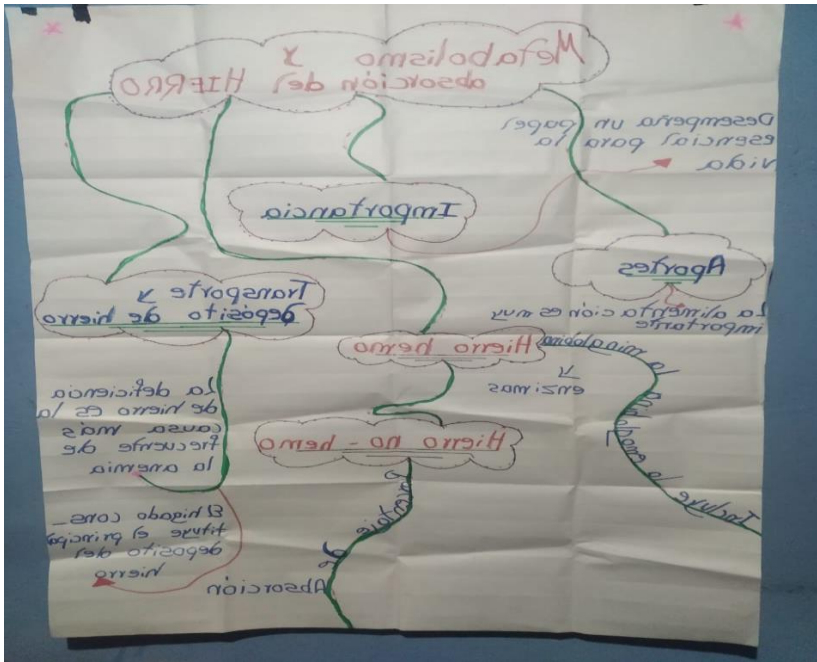 Metabolismo y
absorción del HIERRO
Desempeña un papel
esencial para la
vida
Importancia
Aportes
La alimentación es muy
importante
Transporte y
depósito de hierro
Hierro hemo
enzimas
Incluye la hemoglobina y la mioglobina
La deficiencia
de hierro es la
causa más
frecuente de
la anemia
Hierro no - hemo
Porcentaje de
Absorción
El higado cons_
tituye el principal
deposito del
hierro